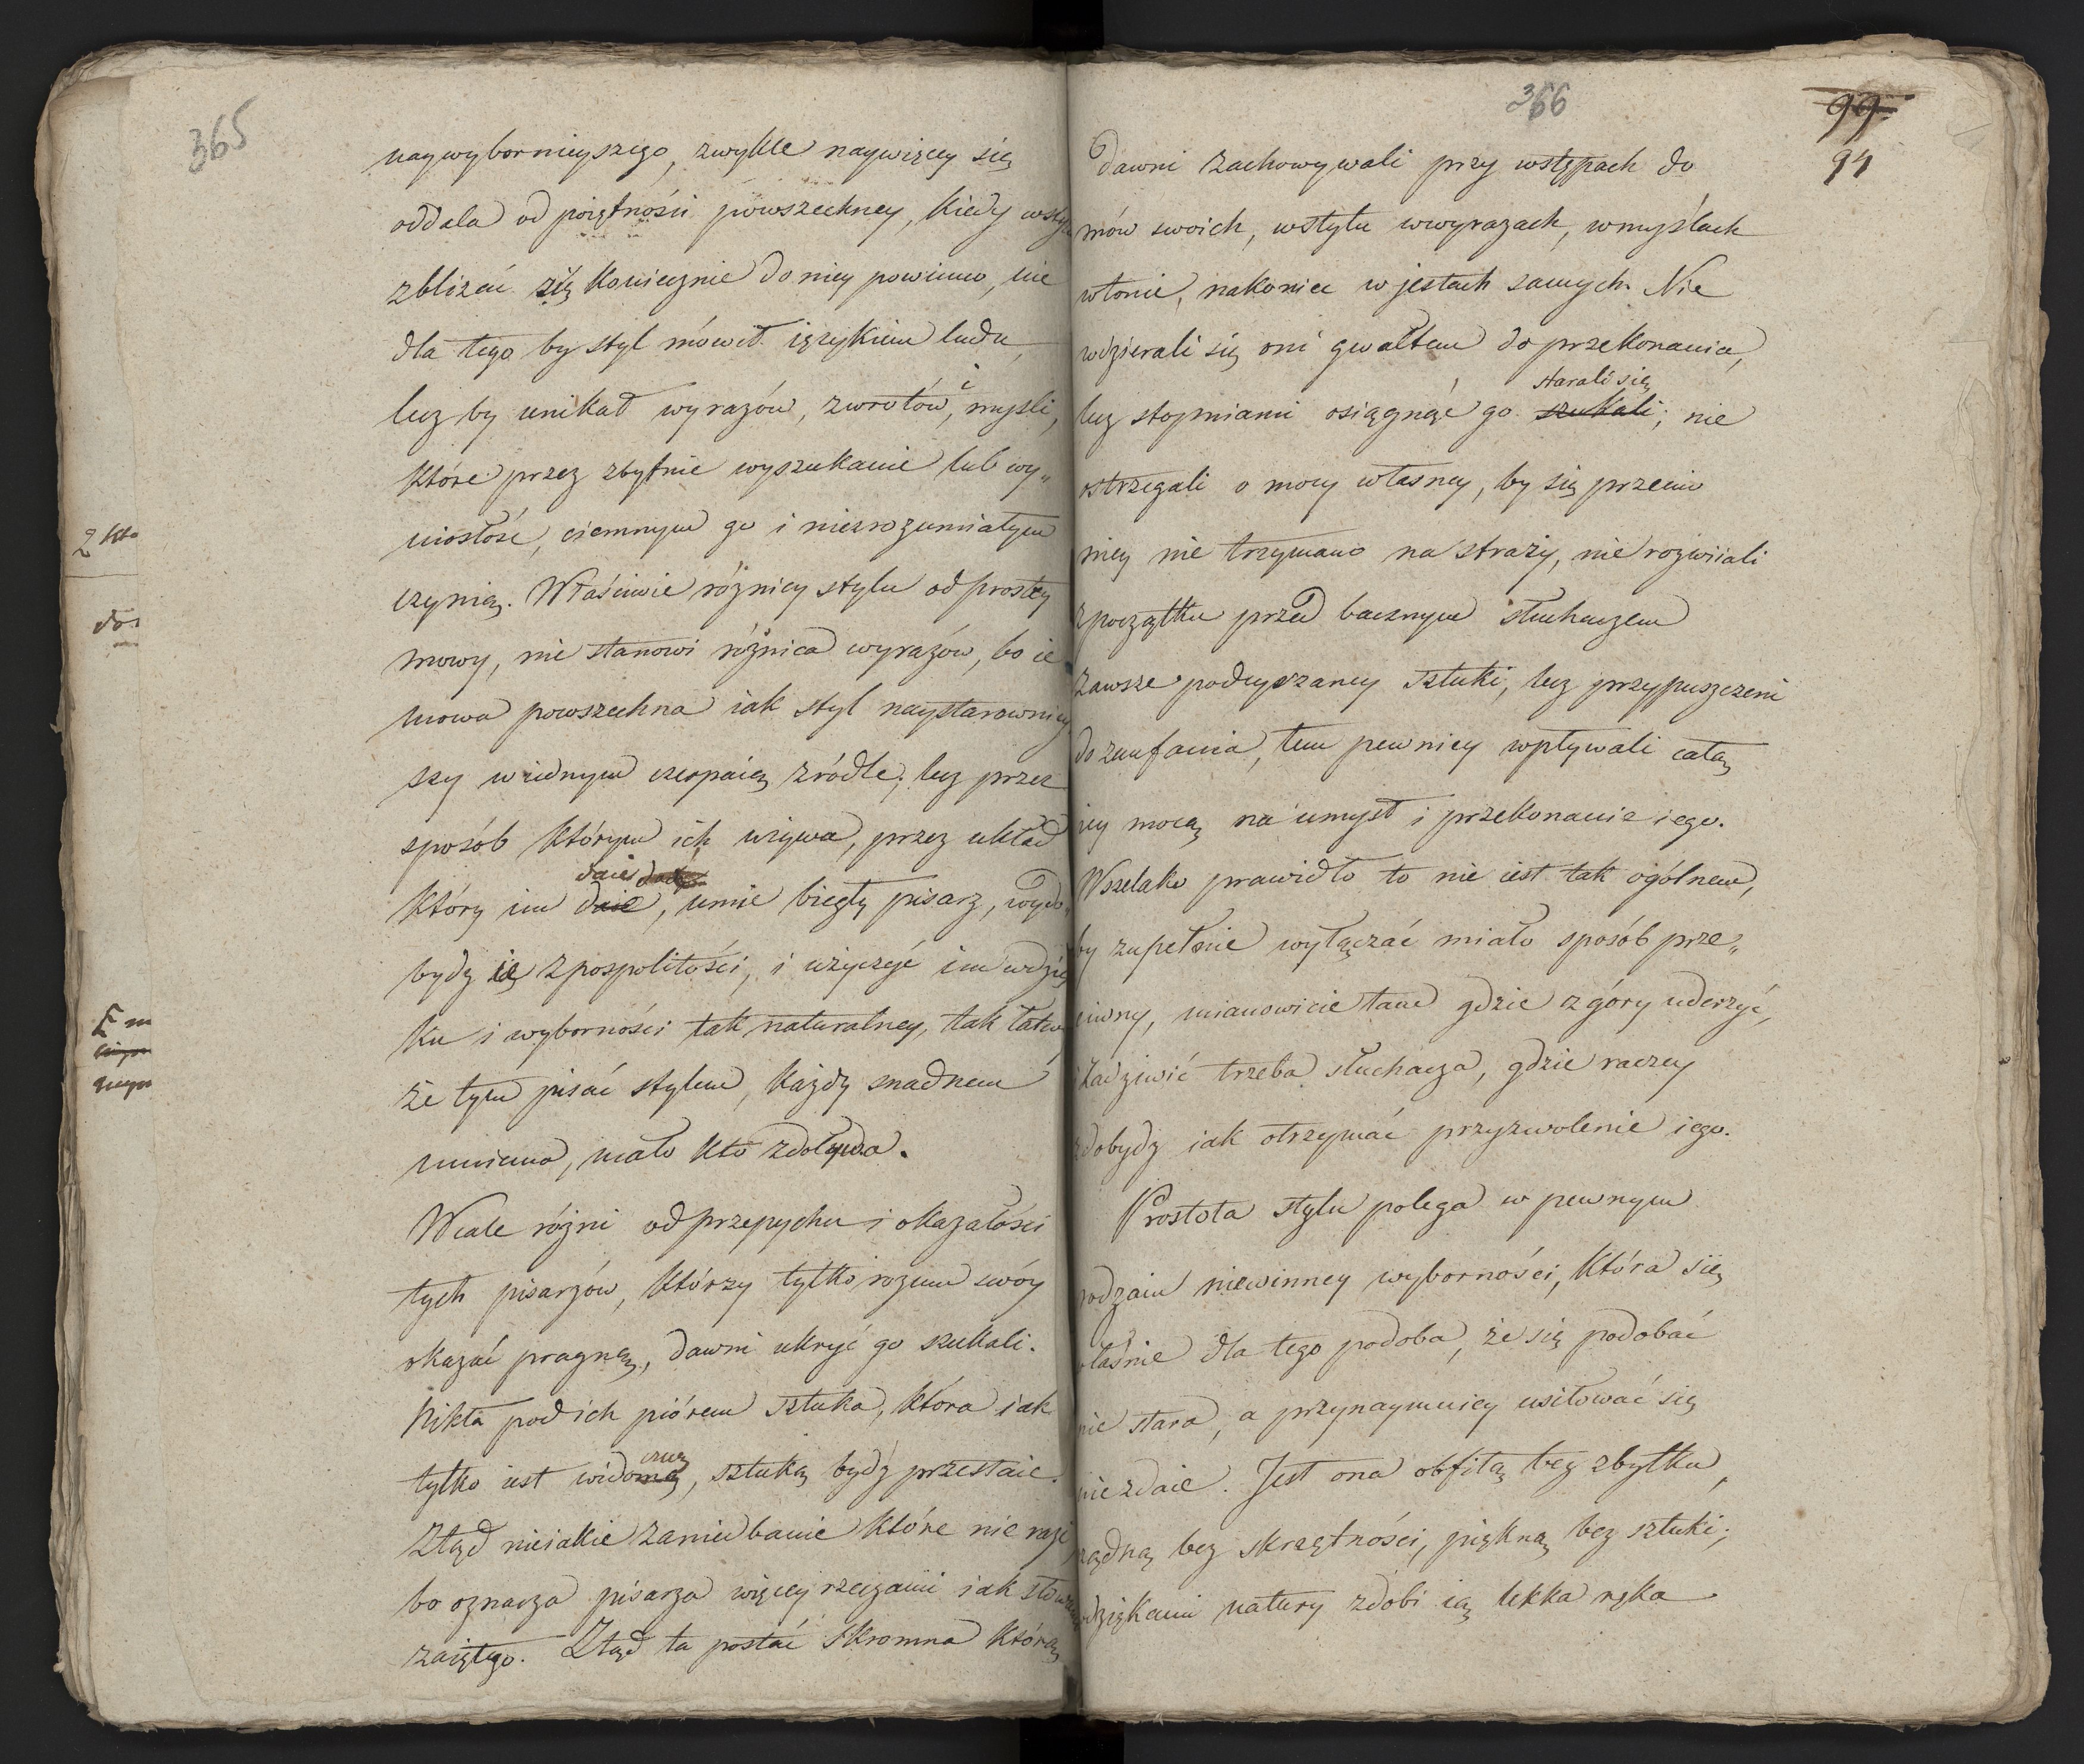 365
naywybornieyszego, zwykle naywięcey się
oddala od poiętności powszechney, kiedy
zbliżać się koniecznie do niey powinno, nie
dla tego by styl mówił ięzykiem ludu,
lecz by unikał wyrazów, zwrotów, i myśli,
które przez zbytnie wyszukanie lub wy„
niosłość, ciemnym go i niezrozumiałym
czynią. Właściwie różnicy stylu od prostey
mowy, nie stanowi różnica wyrazów, bo ie
mowa powszechna iak styl naystarowniey
szy w iednym czerpaią zródle; lecz przez
sposób którym ich używa, przez układ
daie
który im daie, umie biegły pisarz, wydo„
bydź ie z pospolitości, i użyczyć im wdzię
ku i wyborności tak naturalney, tak łatwey
że tym pisać stylem, każdy snadnem
mniema, mało kto zdoływa.
Wcale różni od przepychu i okazałości
tych pisarzów, którzy tylko rozum swóy
okazać pragną, dawni ukryć go szukali.
Nikła pod ich piórem sztuka, która iak
tylko iest widomą, sztuką bydź przestaie.
Ztąd nieiakie zaniedbanie które nie razi
bo oznacza pisarza więcey rzeczami iak słowami
zaiętego. Ztąd ta postać skromna którą
2 kto
366
99.
94
dawni zachowywali przy wstępach do
mów swoich, w stylu w wyrazach, w myślach
w tonie, nakoniec w jestach samych. Nie
wdzierali się oni gwałtem do przekonania,
starali się
lecz stopniami osiągnąć go szukali; nie
ostrzegali o mocy własney, by się przeciw
niey nie trzymano na straży, nie rozwiiali
z początku przed bacznym słuchaczem
zawsze podeyrzaney sztuki, lecz przypuszczeni
do zaufania, tem pewniey wpływali całą
iey mocą na umysł i przekonanie iego.
Wszelako prawidło to nie iest tak ogólnem,
by zupełnie wyłączać miało sposób prze„
ciwny, mianowicie tam gdzie z góry uderzyć,
i zadziwić trzeba słuchacza, gdzie raczey
zdobydź iak otrzymać przyzwolenie iego.
Prostota stylu polega w pewnym
rodzaiu niewinney wyborności, która się
właśnie dla tego podoba, że się podobać
nie stara, a przynaymniey usiłować się
nie zdaie. Jest ona obfitą bez zbytku,
rządną bez skrzętności, piękną bez sztuki;
wdziękami natury zdobi ią lekka ręka